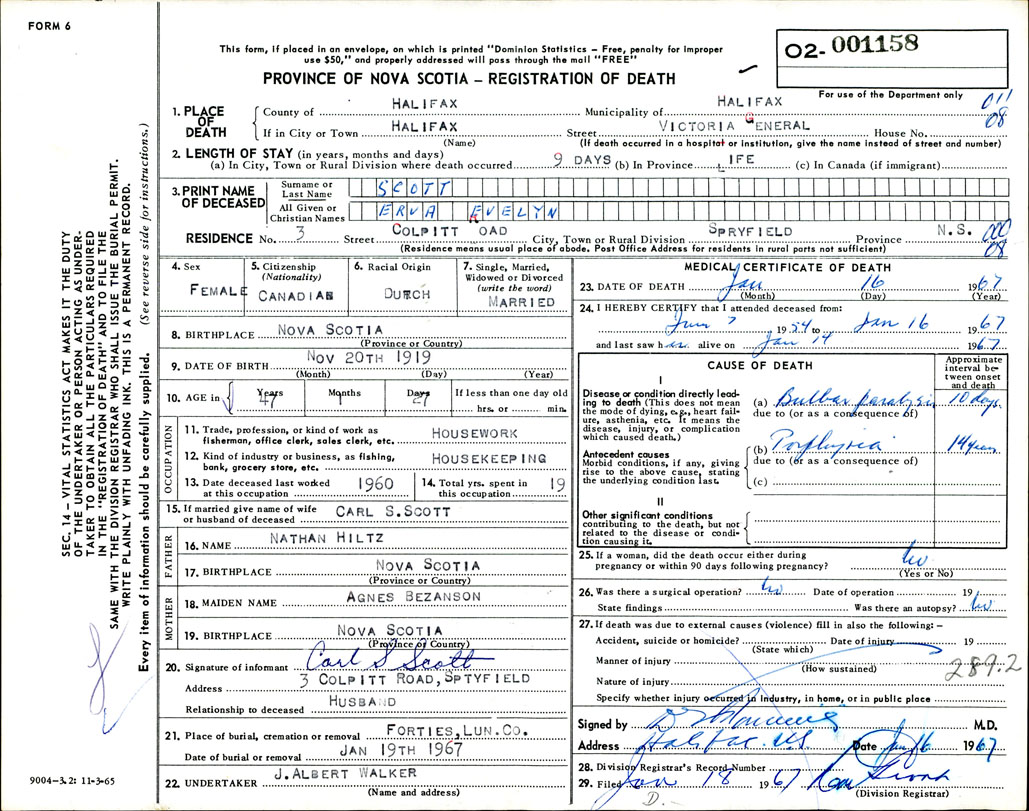 FORM 6
This form, if placed in an envelope, on which is printed "Dominion Statistics – Free, penalty for improper
use $50," and properly addressed will pass through the mail "FREE"
PROVINCE OF NOVA SCOTIA – REGISTRATION OF DEATH
02- 001158
For use of the Department only
011
08
1. PLACE OF DEATH
County of HALIFAX Municipality of HALIFAX
If in City or Town HALIFAX Street VICTORIA GENERAL House No.
(Name) (If death occurred in a hospital or institution, give the name instead of street and number)
2. LENGTH OF STAY (in years, months and days)
(a) In City, Town or Rural Division where death occurred 9 DAYS (b) In Province LIFE (c) In Canada (if immigrant)
3. PRINT NAME OF DECEASED
Surname or Last Name SCOTT
All Given or Christian Names ERVA EVELYN
RESIDENCE No. 3 Street COLPITT OAD City, Town or Rural Division SPRYFIELD Province N.S.
(Residence means usual place of abode. Post Office Address for residents in rural parts not sufficient)
000
08
4. Sex
FEMALE
5. Citizenship
(Nationality)
CANADIAN
6. Racial Origin
DUTCH
7. Single, Married,
Widowed or Divorced
(write the word)
MARRIED
8. BIRTHPLACE NOVA SCOTIA
(Province or Country)
9. DATE OF BIRTH NOV 20TH 1919
(Month) (Day) (Year)
10. AGE in Years 47 Months 1 Days 27 If less than one day old
hrs. or min.
OCCUPATION
11. Trade, profession, or kind of work as
fisherman, office clerk, sales clerk, etc. HOUSEWORK
12. Kind of industry or business, as fishing,
bank, grocery store, etc. HOUSEKEEPING
13. Date deceased last worked
at this occupation 1960
14. Total yrs. spent in
this occupation 19
15. If married give name of wife
or husband of deceased CARL S.SCOTT
FATHER
16. NAME NATHAN HILTZ
17. BIRTHPLACE NOVA SCOTIA
(Province or Country)
MOTHER
18. MAIDEN NAME AGNES BEZANSON
19. BIRTHPLACE NOVA SCOTIA
(Province or Country)
20. Signature of informant Carl S Scott
Address 3 COLPITT ROAD, SPTYFIELD
Relationship to deceased HUSBAND
21. Place of burial, cremation or removal FORTIES, LUN.CO.
Date of burial or removal JAN 19TH 1967
22. UNDERTAKER J.ALBERT WALKER
(Name and address)
MEDICAL CERTIFICATE OF DEATH
23. DATE OF DEATH Jan 16 1967
(Month) (Day) (Year)
24. I HEREBY CERTIFY that I attended deceased from:
1954 to Jan 16 1967
and last saw h er alive on Jan 14 1967
CAUSE OF DEATH
Approximate
interval be-
tween onset
and death
I
Disease or condition directly lead-
ing to death (This does not mean
the mode of dying, e.g., heart fail-
ure, asthenia, etc. It means the
disease, injury, or complication
which caused death.)
(a) Bulbar paralysis 10 days
due to (or as a consequence of)
Antecedent causes
Morbid conditions, if any, giving
rise to the above cause, stating
the underlying condition last.
(b) Porphyria 14 years
due to (or as a consequence of)
(c)
II
Other significant conditions
contributing to the death, but not
related to the disease or condi-
tion causing it.
25. If a woman, did the death occur either during
pregnancy or within 90 days following pregnancy? No
(Yes or No)
26. Was there a surgical operation? No Date of operation 19
State findings Was there an autopsy? No
27. If death was due to external causes (violence) fill in also the following: –
Accident, suicide or homicide? Date of injury 19
(State which)
Manner of injury
(How sustained)
289.2
Nature of injury
Specify whether injury occurred in industry, in home, or in public place
Signed by M.D.
Address Halifax. N.S. Date Jan 16 1967
28. Division Registrar's Record Number
29. Filed Jan 18 1967
(Division Registrar)
D.-
SEC. 14 – VITAL STATISTICS ACT MAKES IT THE DUTY
OF THE UNDERTAKER OR PERSON ACTING AS UNDER-
TAKER TO OBTAIN ALL THE PARTICULARS REQUIRED
IN THE "REGISTRATION OF DEATH" AND TO FILE THE
SAME WITH THE DIVISION REGISTRAR WHO SHALL ISSUE THE BURIAL PERMIT.
WRITE PLAINLY WITH UNFADING INK. THIS IS A PERMANENT RECORD.
Every item of information should be carefully supplied. (See reverse side for instructions.)
9004-3.2: 11-3-65